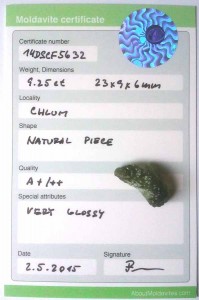 Moldavite certificate
Certificate number
14DSCF5632
Weight, Dimensions
9.25 ct 23x9x6mm
Locality
CHLUM
Shape
NATURAL PIECE
Quality
A+/++
Special attributes
VERY GLOSSY
Date
Signature
2.5.2015
AboutMoldavites.com